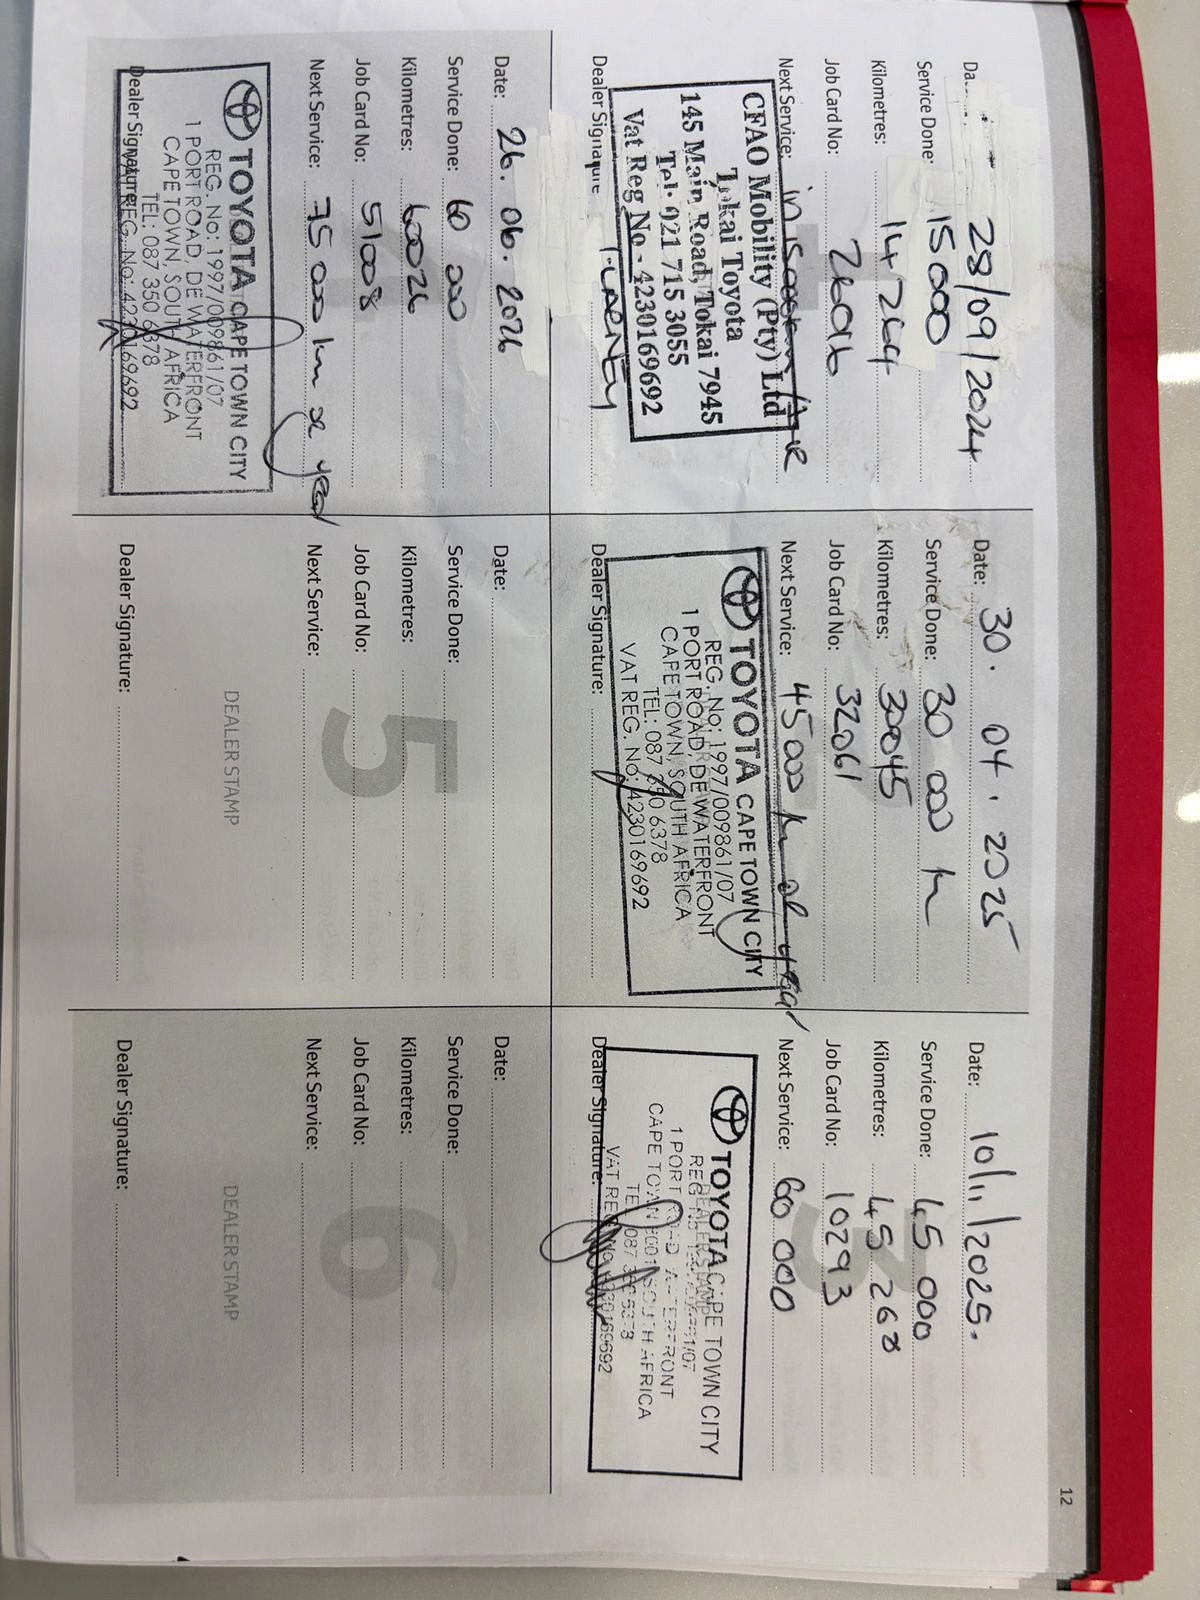 12
Da
28/09/2024
Service Done: 15000
Kilometres: 14264
Job Card No: 26016
Next Service:
CFAO Mobility (Pty) Ltd
Tokai Toyota
145 Main Road, Tokai 7945
Tel: 021 715 3055
Vat Reg No - 4230169692
Dealer Signature
Date: 30. 04. 2025
Service Done: 30 000 k
Kilometres: 30045
Job Card No: 32061
Next Service: 45 000 k or year
TOYOTA CAPE TOWN CITY
REG. No: 1997/009861/07
1 PORT ROAD, DE WATERFRONT
CAPE TOWN, SOUTH AFRICA
TEL: 087 350 6378
VAT REG. No: 4230169692
Dealer Signature:
Date: 10/11/2025.
Service Done: 45 000
Kilometres: 45 268
Job Card No: 10293
Next Service: 60 000
3
TOYOTA CAPE TOWN CITY
DEALER STAMP
1 PORT ROAD
CAPE TOWN SOUTH AFRICA
Dealer Signature:
Date: 26. 06. 2026
Service Done: 60 000
Kilometres: 60026
Job Card No: 51008
Next Service: 75 000 km or year
TOYOTA CAPE TOWN CITY
REG. No: 1997/009861/07
1 PORT ROAD, DE WATERFRONT
CAPE TOWN, SOUTH AFRICA
TEL: 087 350 6378
VAT REG. No: 4230169692
Dealer Signature:
Date:
Service Done:
Kilometres:
Job Card No:
Next Service:
5
DEALER STAMP
Dealer Signature:
Date:
Service Done:
Kilometres:
Job Card No:
Next Service:
6
DEALER STAMP
Dealer Signature: